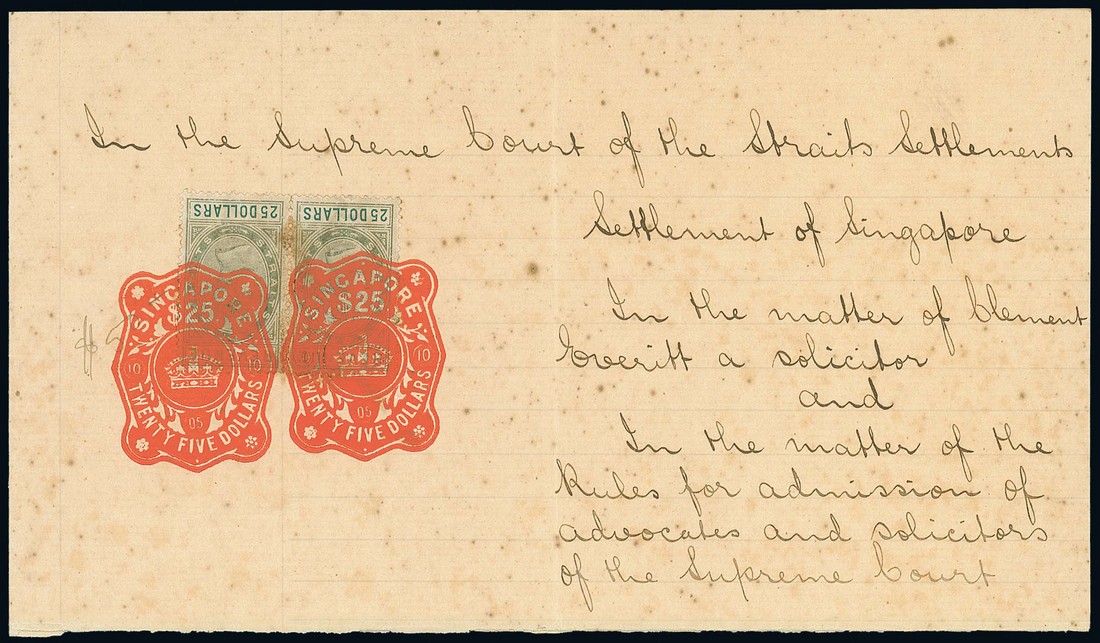 In the Supreme Court of the Straits Settlements
Settlement of Singapore
In the matter of Clement
Everitt a solicitor
and
In the matter of the
Rules for admission of
advocates and solicitors
of the Supreme Court
25 DOLLARS
25 DOLLARS
SINGAPORE
$25
10 10
05
TWENTY FIVE DOLLARS
SINGAPORE
$25
10
05
TWENTY FIVE DOLLARS